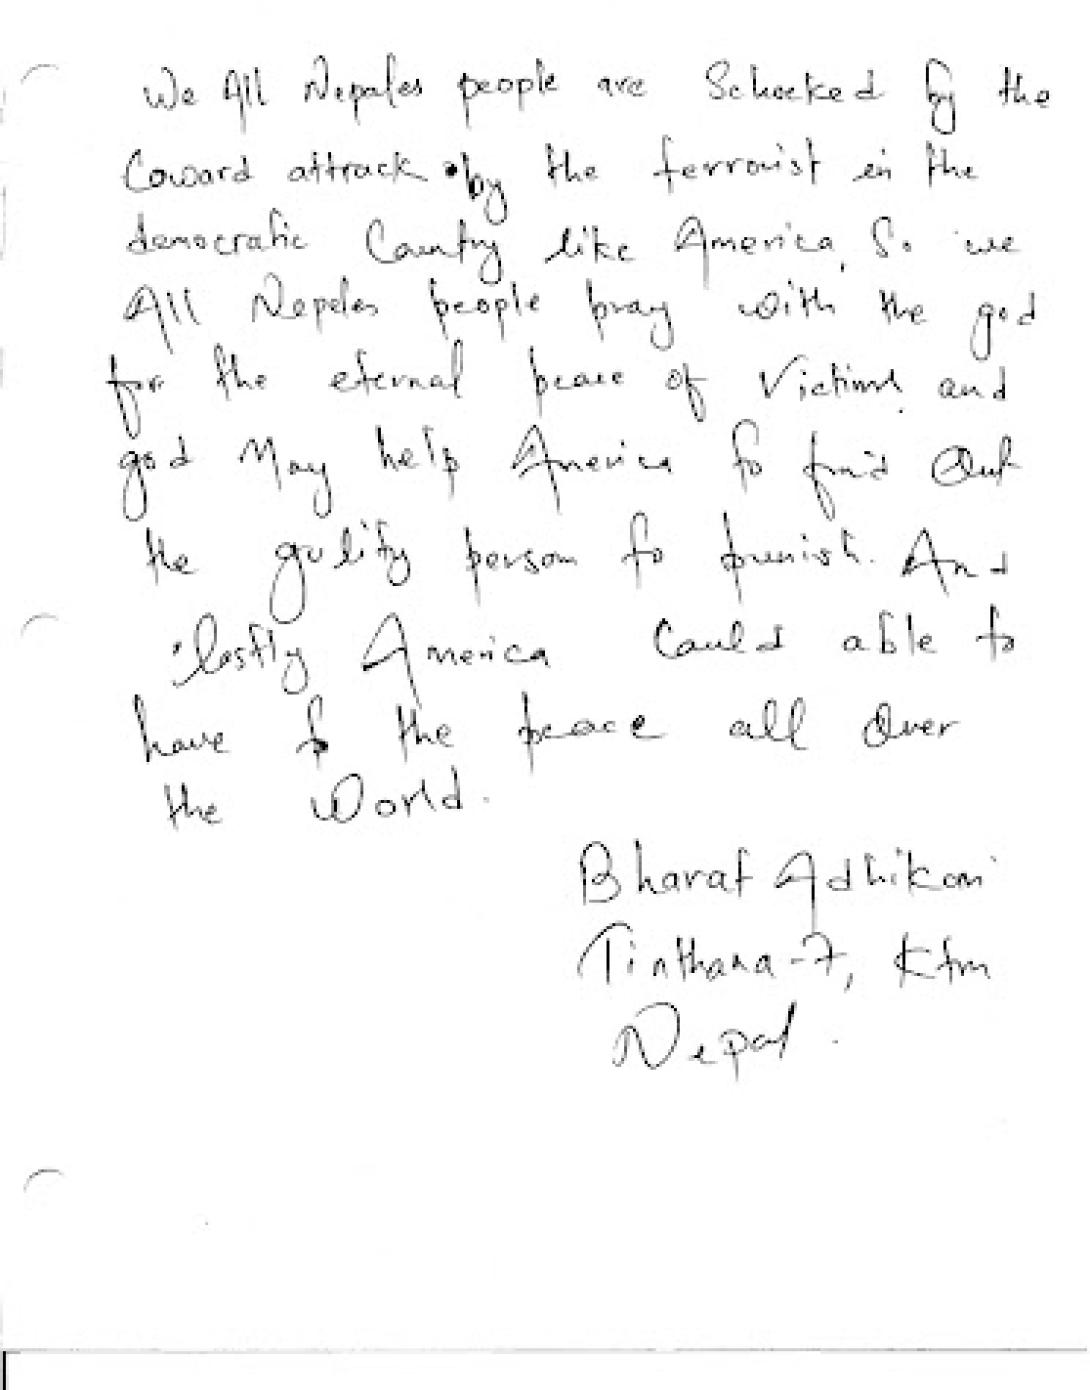 We All Nepales people are Schocked by the
Coward attrack by the terrorist in the
democratic Country like America, So we
All Nepales people pray with the god
for the eternal peace of Victims and
god May help America to find Out
the gulity person to punish. And
lastly America Could able to
have the peace all Over
the World.
Bharat Adhikari
Tinthana-7, Ktm
Nepal.